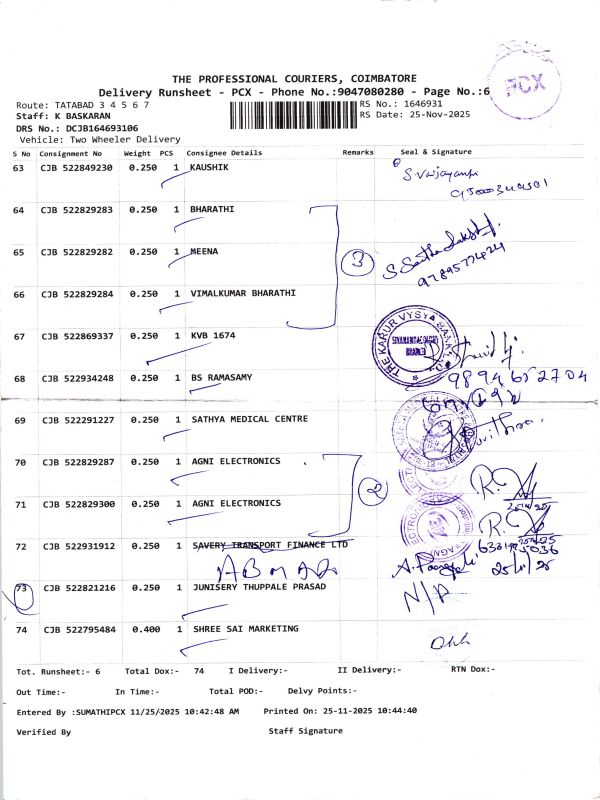 THE PROFESSIONAL COURIERS, COIMBATORE
Delivery Runsheet - PCX - Phone No.:9047080280 - Page No.:6
PCX
Route: TATABAD 3 4 5 6 7
RS No.: 1646931
Staff: K BASKARAN
RS Date: 25-Nov-2025
DRS No.: DCJB164693106
Vehicle: Two Wheeler Delivery
S No Consignment No Weight PCS Consignee Details Remarks Seal & Signature
63 CJB 522849230 0.250 1 KAUSHIK
64 CJB 522829283 0.250 1 BHARATHI
65 CJB 522829282 0.250 1 MEENA
3
66 CJB 522829284 0.250 1 VIMALKUMAR BHARATHI
67 CJB 522869337 0.250 1 KVB 1674
THE KARUR VYSYA BANK
68 CJB 522934248 0.250 1 BS RAMASAMY
9894652704
69 CJB 522291227 0.250 1 SATHYA MEDICAL CENTRE
70 CJB 522829287 0.250 1 AGNI ELECTRONICS
2
71 CJB 522829300 0.250 1 AGNI ELECTRONICS
72 CJB 522931912 0.250 1 SAVERY TRANSPORT FINANCE LTD
73 CJB 522821216 0.250 1 JUNISERY THUPPALE PRASAD
N/A
74 CJB 522795484 0.400 1 SHREE SAI MARKETING
Tot. Runsheet:- 6 Total Dox:- 74 I Delivery:- II Delivery:- RTN Dox:-
Out Time:- In Time:- Total POD:- Delvy Points:-
Entered By :SUMATHIPCX 11/25/2025 10:42:48 AM Printed On: 25-11-2025 10:44:40
Verified By Staff Signature